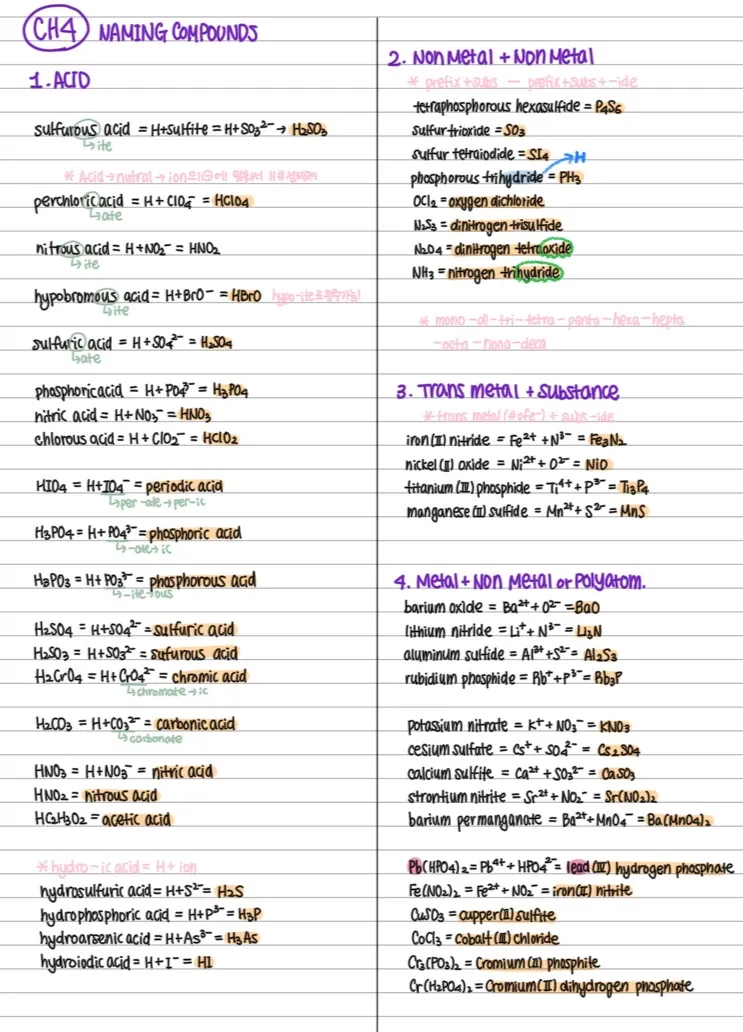 CH4 NAMING COMPOUNDS
1. ACID
sulfurous acid = H+sulfite = H+SO₃²⁻ → H₂SO₃
↳ite
* Acid → nutral → ion의
perchloric acid = H + ClO₄⁻ = HClO₄
↳ate
nitrous acid = H+NO₂⁻ = HNO₂
↳ite
hypobromous acid = H+BrO⁻ = HBrO hypo-ite
↳ite
sulfuric acid = H+SO₄²⁻ = H₂SO₄
↳ate
phosphoric acid = H+PO₄³⁻ = H₃PO₄
nitric acid = H+NO₃⁻ = HNO₃
chlorous acid = H + ClO₂⁻ = HClO₂
HIO₄ = H+IO₄⁻ = periodic acid
↳per-ate→per-ic
H₃PO₄ = H+PO₄³⁻ = phosphoric acid
↳-ate→ic
H₃PO₃ = H+PO₃³⁻ = phosphorous acid
↳-ite→ous
H₂SO₄ = H+SO₄²⁻ = sulfuric acid
H₂SO₃ = H+SO₃²⁻ = sufurous acid
H₂CrO₄ = H+CrO₄²⁻ = chromic acid
↳chromate→ic
H₂CO₃ = H+CO₃²⁻ = carbonic acid
↳carbonate
HNO₃ = H+NO₃⁻ = nitric acid
HNO₂ = nitrous acid
HC₂H₃O₂ = acetic acid
* hydro-ic acid = H+ ion
hydrosulfuric acid = H+S²⁻ = H₂S
hydrophosphoric acid = H+P³⁻ = H₃P
hydroarsenic acid = H+As³⁻ = H₃As
hydroiodic acid = H+I⁻ = HI
2. Non Metal + Non Metal
* prefix+subs — prefix+subs+-ide
tetraphosphorous hexasulfide = P₄S₆
sulfur trioxide = SO₃
sulfur tetraiodide = SI₄
→H
phosphorous trihydride = PH₃
OCl₂ = oxygen dichloride
N₂S₃ = dinitrogen trisulfide
N₂O₄ = dinitrogen tetraoxide
NH₃ = nitrogen trihydride
* mono-di-tri-tetra-penta-hexa-hepta
-octa-nona-deca
3. Trans metal + Substance
* trans metal (# of e⁻) + subs-ide
iron (II) nitride = Fe²⁺ + N³⁻ = Fe₃N₂
nickel (II) oxide = Ni²⁺ + O²⁻ = NiO
titanium (IV) phosphide = Ti⁴⁺ + P³⁻ = Ti₃P₄
manganese (II) sulfide = Mn²⁺ + S²⁻ = MnS
4. Metal + Non Metal or Polyatom.
barium oxide = Ba²⁺ + O²⁻ = BaO
lithium nitride = Li⁺ + N³⁻ = Li₃N
aluminum sulfide = Al³⁺ + S²⁻ = Al₂S₃
rubidium phosphide = Rb⁺ + P³⁻ = Rb₃P
potassium nitrate = K⁺ + NO₃⁻ = KNO₃
cesium sulfate = Cs⁺ + SO₄²⁻ = Cs₂SO₄
calcium sulfite = Ca²⁺ + SO₃²⁻ = CaSO₃
strontium nitrite = Sr²⁺ + NO₂⁻ = Sr(NO₂)₂
barium permanganate = Ba²⁺+MnO₄⁻ = Ba(MnO₄)₂
Pb(HPO₄)₂ = Pb⁴⁺ + HPO₄²⁻ = lead (IV) hydrogen phosphate
Fe(NO₂)₂ = Fe²⁺ + NO₂⁻ = iron(II) nitrite
CuSO₃ = cupper(II) sulfite
CoCl₃ = cobalt (III) chloride
Cr₃(PO₃)₂ = Cromium (II) phosphite
Cr(H₂PO₄)₂ = Cromium(II) dihydrogen phosphate